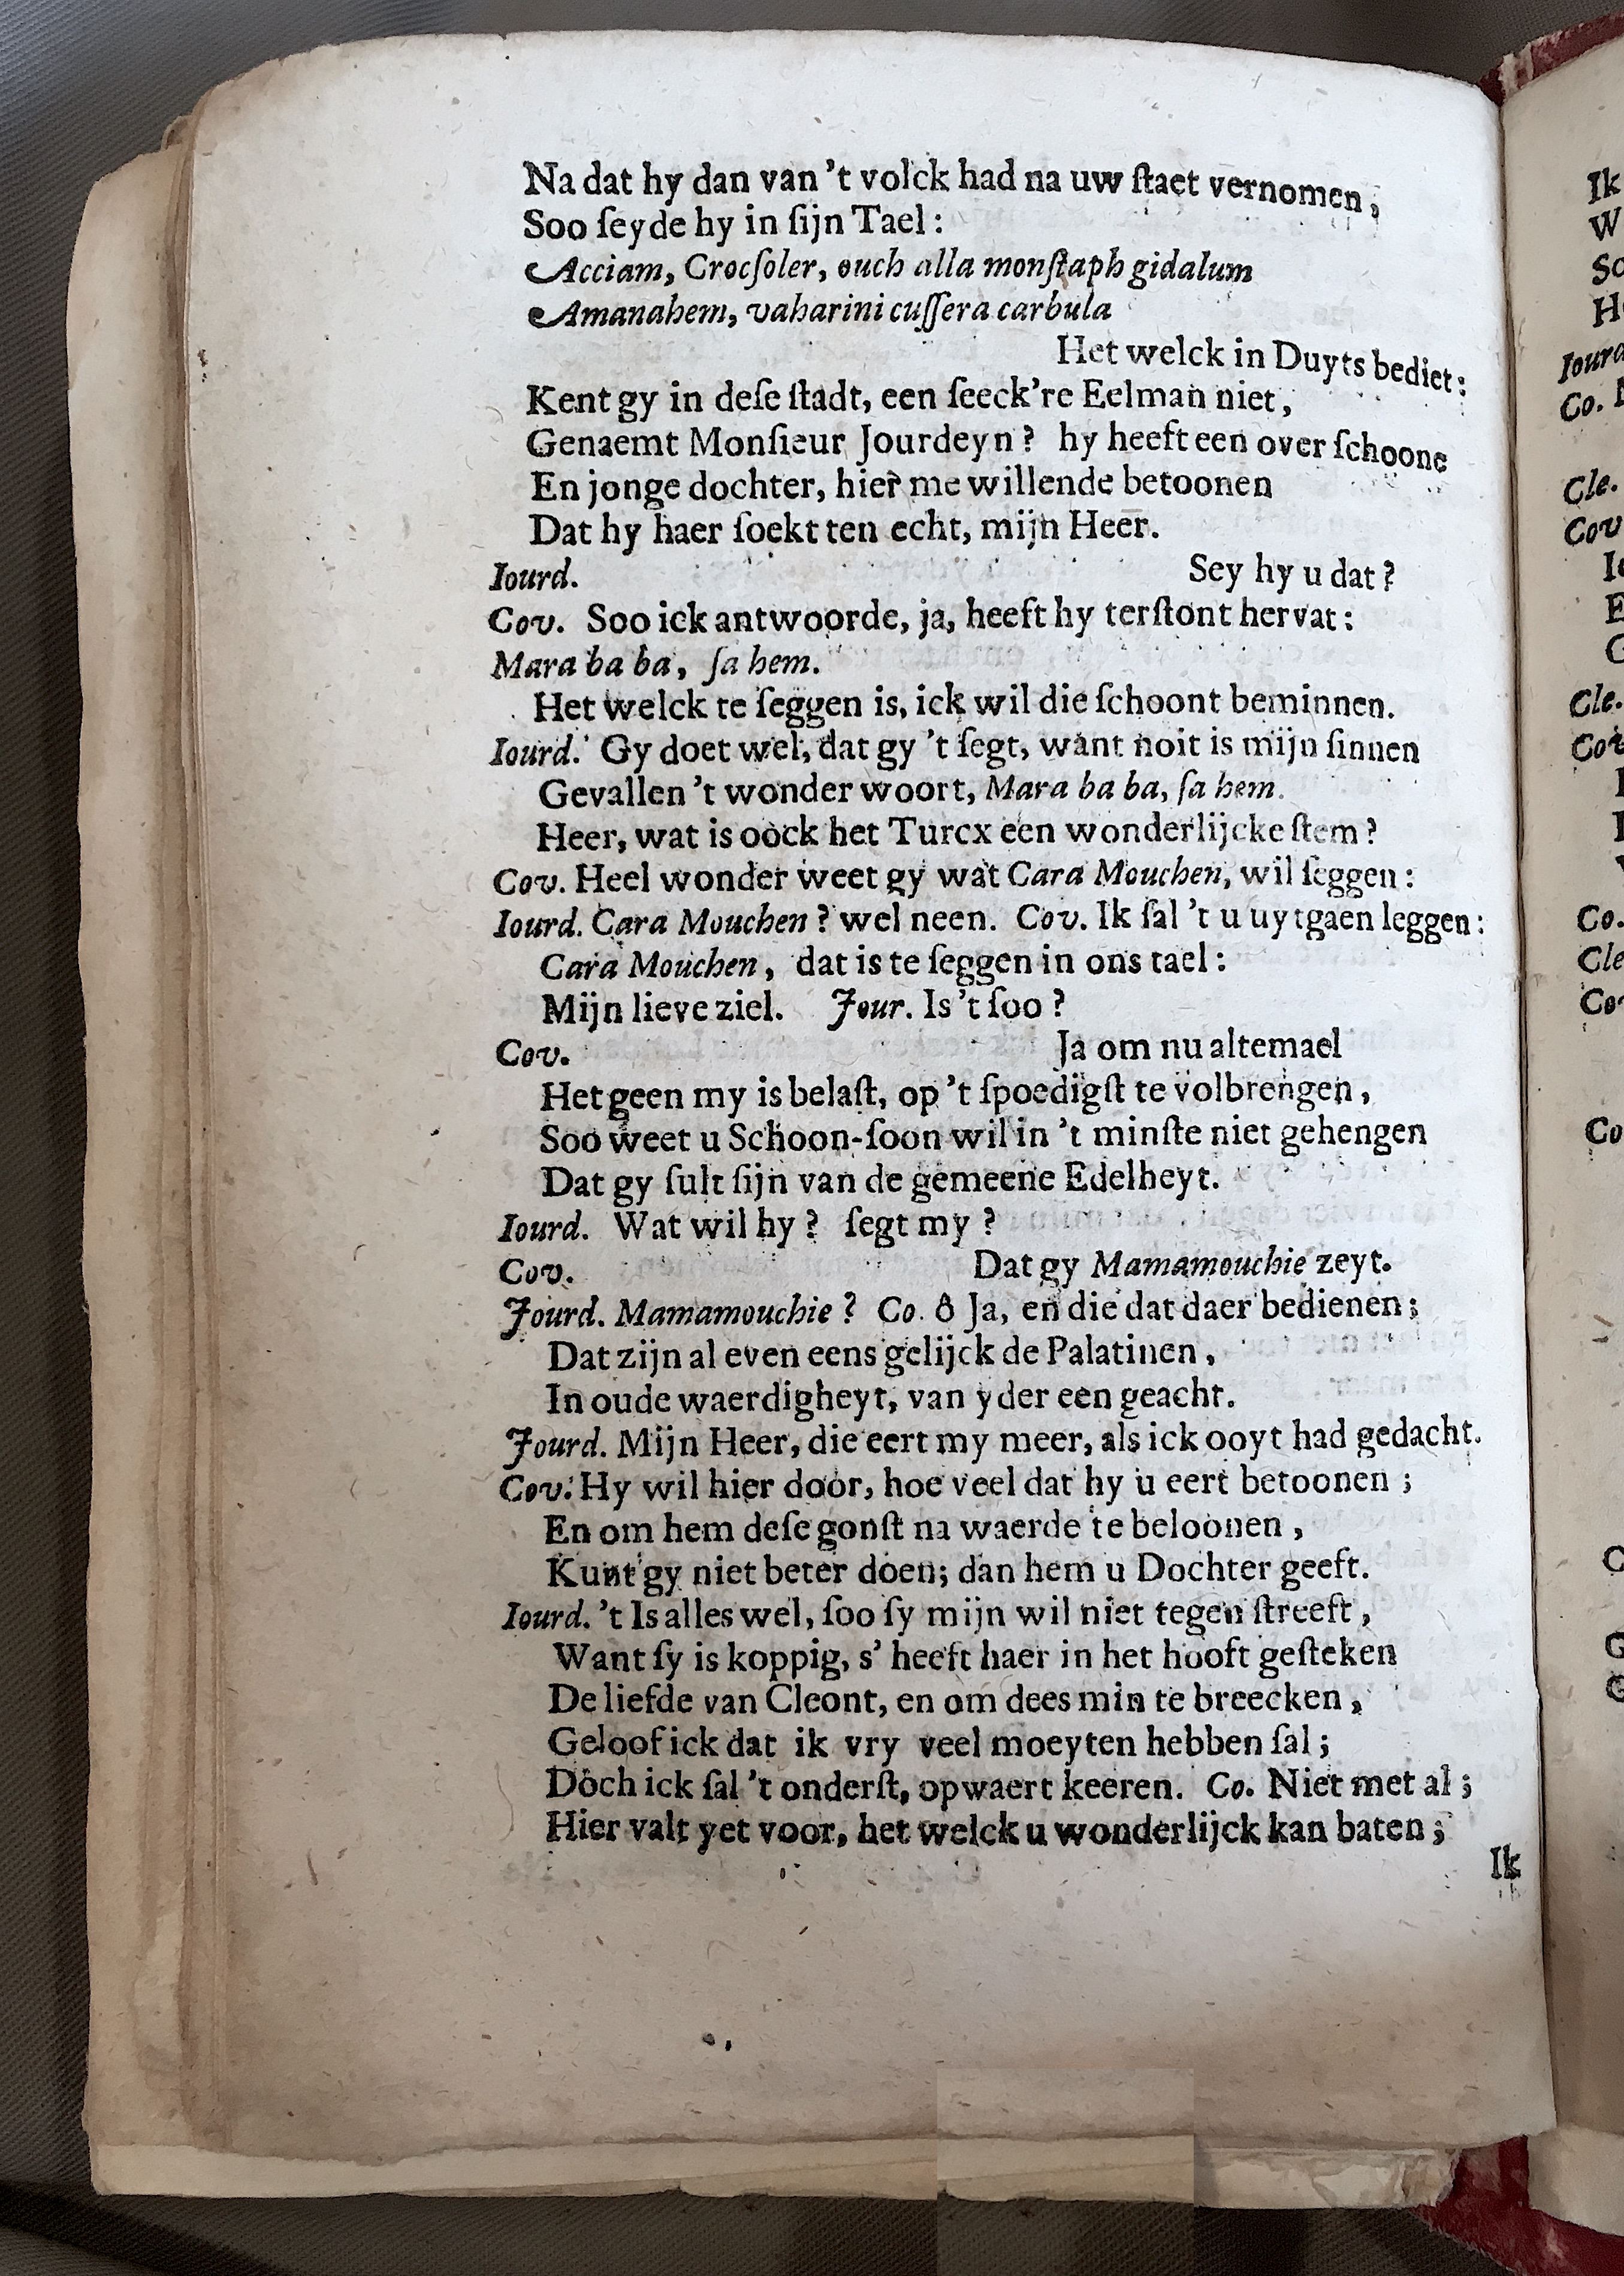 Na dat hy dan van 't volck had na uw ſtaet vernomen,
Soo ſeyde hy in ſijn Tael:
Acciam, Crocſoler, ouch alla monſtaph gidalum
Amanahem, vaharini cuſſera carbula
Het welck in Duyts bediet:
Kent gy in deſe ſtadt, een ſeeck're Eelman niet,
Genaemt Monſieur Jourdeyn? hy heeft een over ſchoone
En jonge dochter, hier me willende betoonen
Dat hy haer ſoekt ten echt, mijn Heer.
Iourd. Sey hy u dat?
Cov. Soo ick antwoorde, ja, heeft hy terſtont hervat:
Mara ba ba, ſa hem.
Het welck te ſeggen is, ick wil die ſchoont beminnen.
Iourd. Gy doet wel, dat gy 't ſegt, want noit is mijn ſinnen
Gevallen 't wonder woort, Mara ba ba, ſa hem.
Heer, wat is oock het Turcx een wonderlijcke ſtem?
Cov. Heel wonder weet gy wat Cara Mouchen, wil ſeggen:
Iourd. Cara Mouchen? wel neen. Cov. Ik ſal 't u uytgaen leggen:
Cara Mouchen, dat is te ſeggen in ons tael:
Mijn lieve ziel. Jour. Is 't ſoo?
Cov. Ja om nu altemael
Het geen my is belaſt, op 't ſpoedigſt te volbrengen,
Soo weet u Schoon-ſoon wil in 't minſte niet gehengen
Dat gy ſult ſijn van de gemeene Edelheyt.
Iourd. Wat wil hy? ſegt my?
Cov. Dat gy Mamamouchie zeyt.
Jourd. Mamamouchie? Co. ô Ja, en die dat daer bedienen;
Dat zijn al even eens gelijck de Palatinen,
In oude waerdigheyt, van yder een geacht.
Jourd. Mijn Heer, die eert my meer, als ick ooyt had gedacht.
Cov. Hy wil hier door, hoe veel dat hy u eert betoonen;
En om hem deſe gonſt na waerde te beloonen,
Kunt gy niet beter doen; dan hem u Dochter geeft.
Iourd. 't Is alles wel, ſoo ſy mijn wil niet tegen ſtreeft,
Want ſy is koppig, s' heeft haer in het hooft geſteken
De liefde van Cleont, en om dees min te breecken,
Geloof ick dat ik vry veel moeyten hebben ſal;
Doch ick ſal 't onderſt, opwaert keeren. Co. Niet met al;
Hier valt yet voor, het welck u wonderlijck kan baten;
Ik